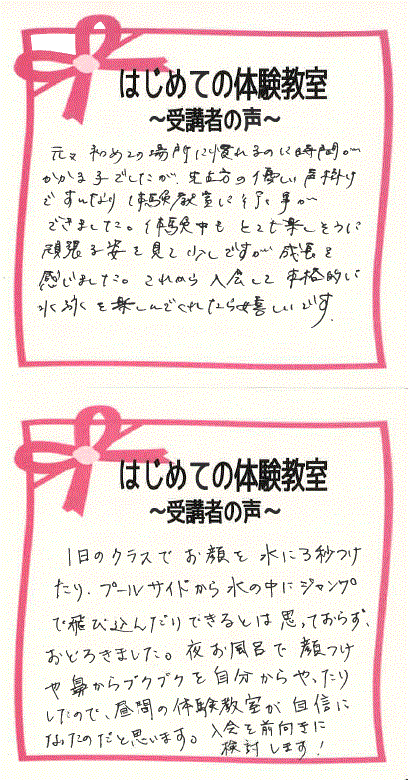 はじめての体験教室
〜受講者の声〜
元々 初めての場所に慣れるのに時間が
かかる子でしたが、先生方の優しい声掛け
ですんなり体験教室に行く事が
できました。体験中も とても楽しそうに
頑張る姿を見て少しですが成長を
感じました。これから 入会して 本格的に
水泳を楽しんでくれたら嬉しいです。
はじめての体験教室
〜受講者の声〜
1日のクラスで お顔を 水に3秒つけ
たり、プールサイドから水の中にジャンプ
で飛び込んだりできるとは思っておらず、
おどろきました。夜お風呂で 顔つけ
や鼻からブクブクを自分からやったり
したので、昼間の体験教室が 自信に
なったのだと思います。入会を前向きに
検討します!